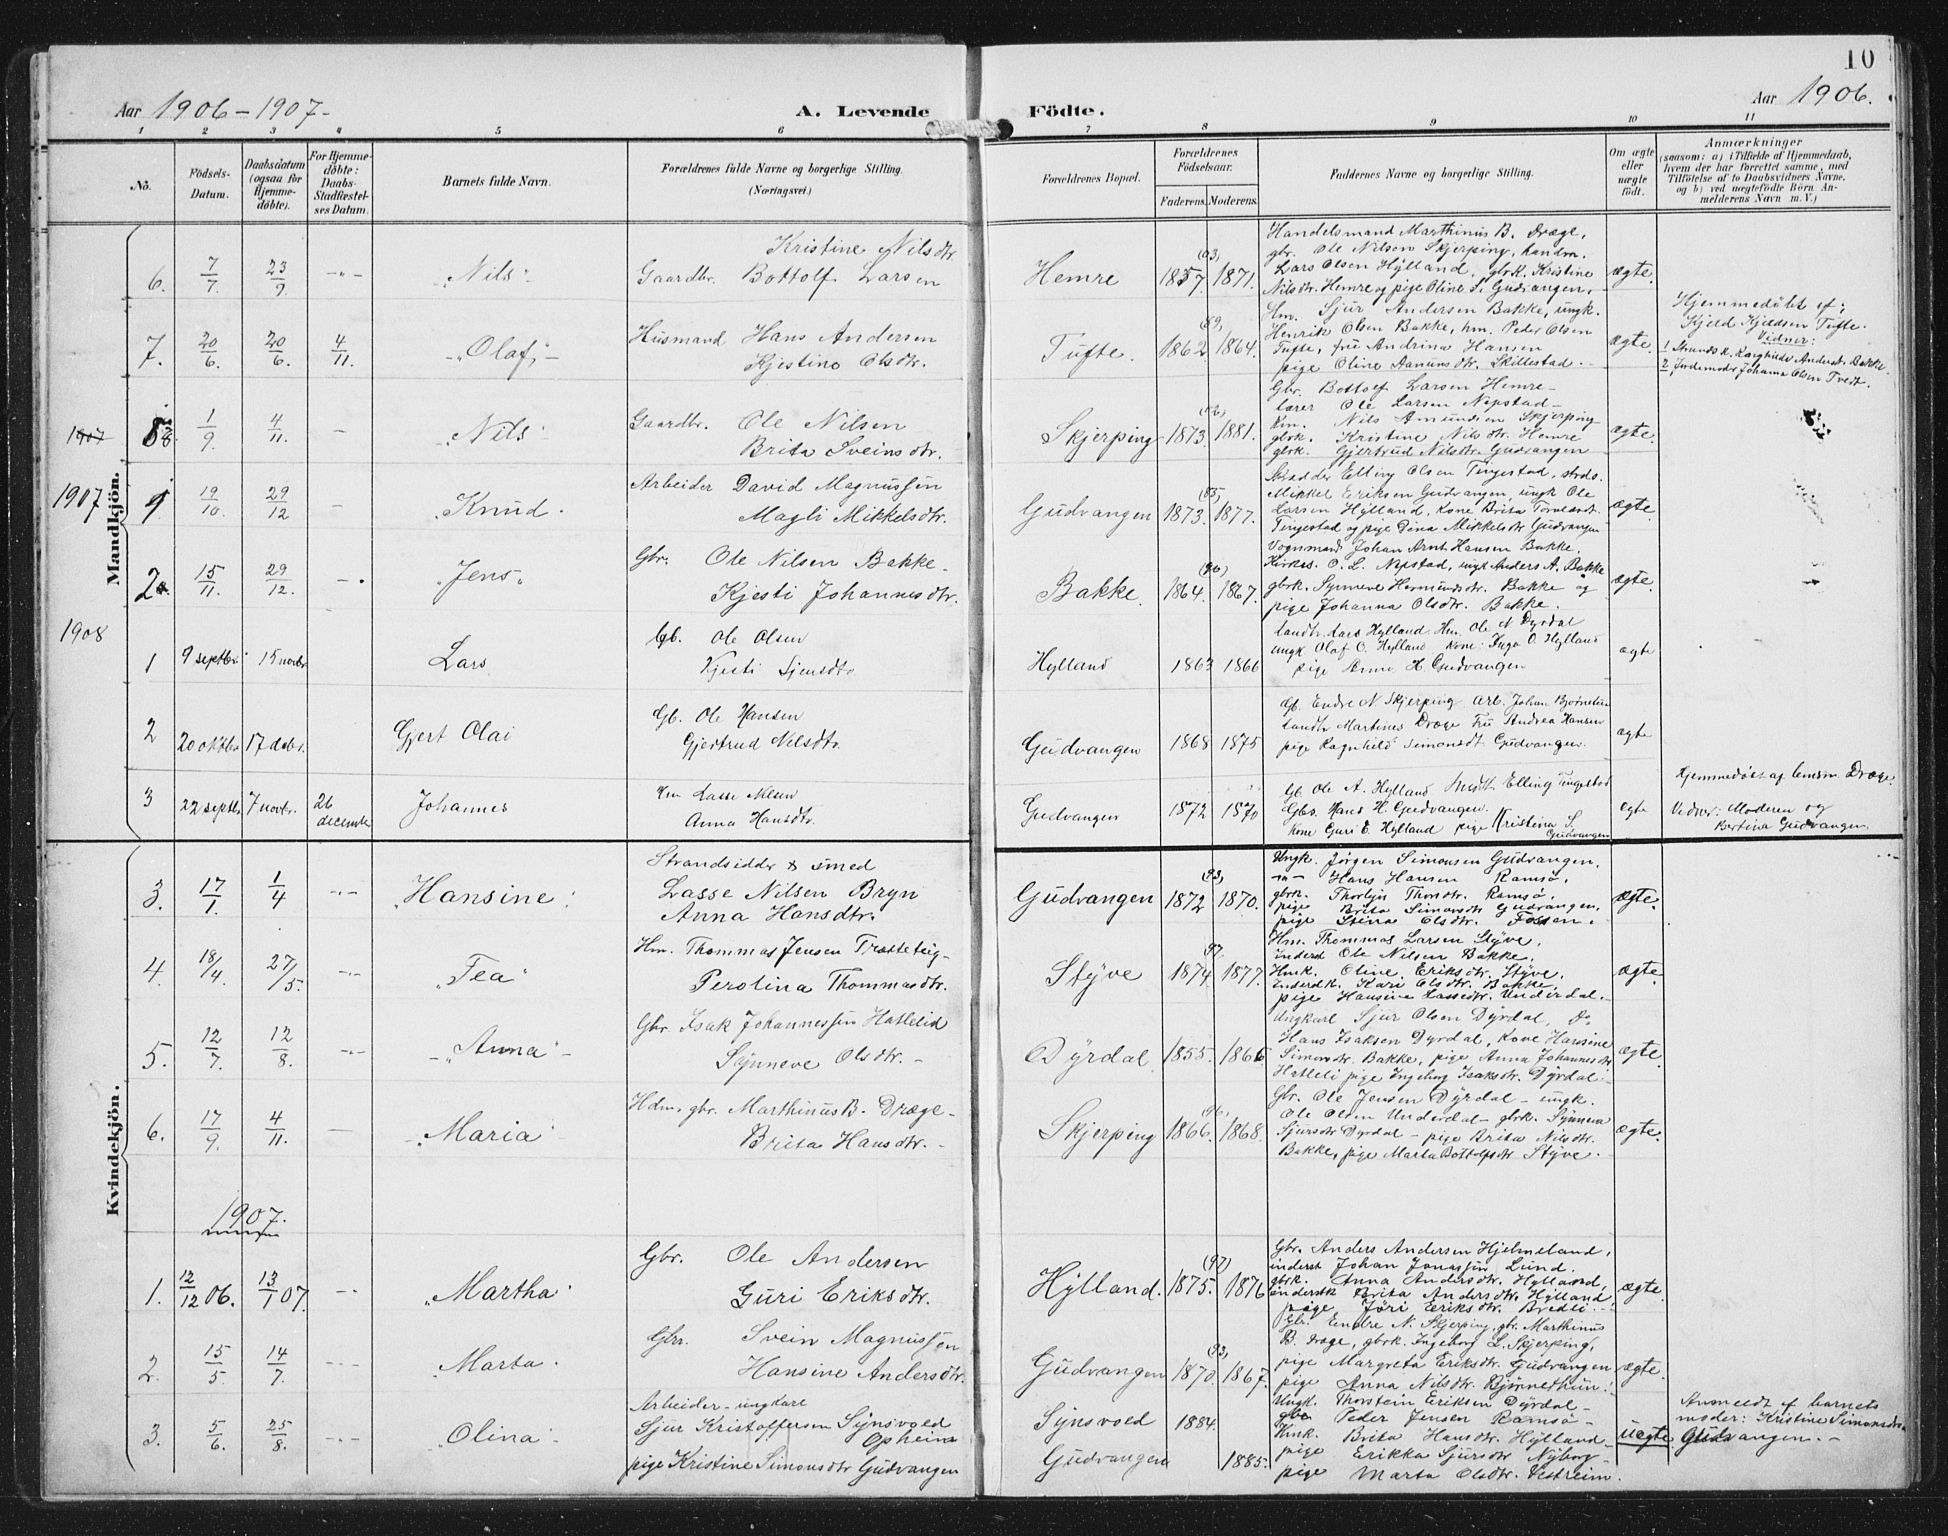 10
Aar 1906-1907.
A. Levende
Födte.
Aar 1906.
1 2 3 4 5 6 7 8 9 10 11
No.
Födsels-Datum.
Daabsdatum (ogsaa for Hjemmedöbte).
For Hjemmedöbte: Daabs-Stadfæstelses Datum.
Barnets fulde Navn.
Forældrenes fulde Navne og borgerlige Stilling. (Næringsvei.)
Forældrenes Bopæl.
Forældrenes Födselsaar.
Faderens. Moderens.
Faddernes Navne og borgerlige Stilling.
Om ægte eller uægte födt.
Anmærkninger
(saasom: a) i Tilfælde af Hjemmedaab, hvem der har forrettet samme, med Tilföielse af to Daabsvidners Navne, og b) ved uægtefödte Börn Anmelderens Navn m. V.)
Mandkjön.
6. 7/7 23/9 -"- "Nils" Gaardbr. Bottolf Larsen
Kristine Nilsdtr
Hemre 1857. 1871. ægte.
Handelsmand Marthinus B. Dræge,
gbr. Ole Nilsen Skjerping, handm.
Lars Olsen Hylland, gbrk. Kristine
Nilsdtr. Hemre og pige Oline S. Gudvangen.
7. 20/6. 20/6. 4/11. "Olaf" Husmand Hans Andersen
Kjestine Olsdtr.
Tufte. 1862 1864. ægte.
Hm. Sjur Andersen Bakke, ungk.
Henrik Olsen Bakke, hm. Peder Olsen
Tufte, fru Andrina Hansen
pige Oline Skillestad.
Hjemmedöbt af:
Kjeld Kjeldsen Tufte.
Vidner:
1 Strandsk. Anders Bakke.
2 Jordemoder Johanna Olsen Tvedt.
1907
8. 1/9. 4/11. - "Nils" Gaardbr. Ole Nilsen
Brita Sveinsdtr.
Skjerping 1873 1881. ægte.
Gbr. Bottolf Larsen Hemre -
lærer Ole Larsen Nepstad -
Nils Amundsen Skjerping
gbrk. Kristine Nilsdtr. Hemre
gbrk. Gjertrud Nilsdtr. Gudvangen
1907
1 19/10. 29/12 - "Knud" Arbeider David Magnussen
Magli Mikkelsdtr.
Gudvangen 1873. 1877. ægte.
Elling Olsen Tingestad, strds.
Mikkel Eriksen Gudvangen, ungk Ole
Larsen Hylland, Kone Brita
Tingestad og pige Dina Mikkelsdtr Gudvangen
2 15/11. 29/12. - "Jens" Gbr. Ole Nilsen Bakke.
Kjesti Johannesdtr.
Bakke. 1864. (90) 1867. ægte.
Vognmand Johan Arnt Hansen Bakke.
Kirkes. O. L. Nepstad, ungk Anders A. Bakke
gbrk. Synneve Hermundsdtr. Bakke og
pige Johanna Olsdtr. Bakke.
1908
1 9 septbr. 15 novbr Lars Gb. Ole Olsen
Kjesti
Hylland 1863 1866 ægte
Landh. Lars Hylland. Hm. Ole N Dyrdal
ungk Olaf O. Hylland Kone: Inga O. Hylland
pige Anna H. Gudvangen
2 20 oktbr 17 decbr. Gjert Olai Gb. Ole Hansen
Gjertrud Nilsdtr.
Gudvangen 1868 1875 ægte
Gb. Endre N Skjerping Arb. Johan
Landh Martines Dræge Fru Andrea Hansen
pige Ragnhild Simonsdt Gudvangen.
3 22 septbr. 7 novbr. 26 decembr Johannes Hm Lasse Nilsen
Anna Hansdtr.
Gudvangen 1872 1870 ægte
Gb Ole A. Hylland Elling Tingestad
Gbs. Hans H. Gudvangen.
Kone Guri E. Hylland pige Kristina S. Gudvangen
Hjemmedöbt af Dræge.
Vidner: Moderen og
Bertina Gudvangen.
Kvindekjön.
3. 17/1. 1/4 -"- "Hansine" Strandsidder & smed
Lasse Nilsen Bryn
Anna Hansdtr.
Gudvangen 1872 (93) 1870. ægte.
Ungk. Jörgen Simonsen Gudvangen.
-"- Hans Hansen Ramsö,
gbrk. Thorleyn Thorsdtr. Ramsö,
pige Brita Simonsdtr Gudvangen,
pige Stina Olsdtr. Fossen.
4. 18/4. 27/5. -"- "Tea" Hm. Thommas Jensen Tratteteig-
Perolina Thommasdtr.
Styve 1874 (97. 1877. ægte.
Hm. Thommas Larsen Styve,
inderst Ole Nilsen Bakke.
Hmk. Oline Eriksdtr. Styve.
Inderstk. Kari Olsdtr. Bakke,
pige Hansine Lassedtr. Underdal.
5. 12/7. 12/8. -"- "Anna" Gbr Isak Johannessen Hatlelid
Synneve Olsdtr.
Dyrdal 1855. 1866 ægte.
Ungkarl Sjur Olsen Dyrdal, Do
Hans Isaksen Dyrdal, Kone Hansine
Simonsdtr. Bakke, pige Anna Johannesdtr
Hatleli pige Ingeborg Isaksdtr. Dyrdal.
6. 17/9. 4/11. - "Maria" Hdm. gbr. Marthinus B. Dræge-
Brita Hansdtr.
Skjerping 1866. 1868. ægte.
Gbr. Ole Jensen Dyrdal - ungk.
Ole Olsen Underdal - gbrk. Synneva
Sjursdtr Dyrdal - pige Brita Nilsdtr.
Bakke, pige Marta Bottolfsdtr Styve.
1907.
1. 12/12 06. 13/1 07. -"- "Martha" Gbr. Ole Andersen
Guri Eriksdtr.
Hylland. 1875. (97) 1876 ægte.
Gbr. Anders Andersen Hjelmeland,
inderst Johan Jonassen Lund.
gbrk. Anna Andersdtr. Hylland,
inderstk Brita Andersdtr. Hylland
pige Jöri Eriksdtr. Bredli.
2. 15/5. 14/7. "Marta" Gbr. Svein Magnussen
Hansine Andersdtr.
Gudvangen 1870. (93) 1867. ægte.
Gbr. Endre N. Skjerping, gbr. Marthinus
B. Dræge, gbrk. Ingeborg L. Skjerping,
pige Margreta Eriksdtr. Gudvangen
pige Anna Nilsdtr.
3. 5/6. 25/8. "Olina" Arbeider - ungkarl
Sjur Kristoffersen Synsvold
Opheim
pige Kristine Simonsdtr Gudvangen
Synsvold 1884.
Gudvangen 1885. uægte
Ungk. Thorstein Eriksen Dyrdal -
gbr Peder Jensen Ramsö -
Hmk. Brita Hansdtr. Hylland -
pige Erikka Sjursdtr Nyborg -
pige Marta Olsdtr. Vestreim.
Anmeldt af barnets
moder: Kristine Simonsdtr.
Gudvangen.